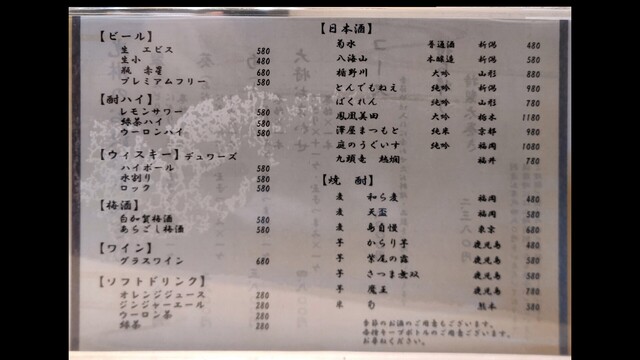 【ビール】
生 エビス 580
生小 480
瓶 赤星 680
プレミアムフリー 580
【酎ハイ】
レモンサワー 580
緑茶ハイ 580
ウーロンハイ 580
【ウィスキー】デュワーズ
ハイボール 580
水割り 580
ロック 580
【梅酒】
白加賀梅酒 580
あらごし梅酒 580
【ワイン】
グラスワイン 680
【ソフトドリンク】
オレンジジュース 280
ジンジャーエール 280
ウーロン茶 280
緑茶 280
【日本酒】
菊水 普通酒 新潟 480
八海山 本醸造 新潟 580
楯野川 大吟 山形 880
とんでもねえ 純吟 新潟 980
ばくれん 純吟 山形 780
鳳凰美田 大吟 栃木 1180
澤屋まつもと 純米 京都 980
庭のうぐいす 純吟 福岡 1080
九頭竜 熱燗 福井 780
【焼 酎】
麦 和ら麦 福岡 480
麦 天盃 福岡 580
麦 島自慢 東京 680
芋 からり芋 鹿児島 480
芋 紫尾の露 鹿児島 580
芋 さつま無双 鹿児島 580
芋 魔王 鹿児島 780
米 匂 熊本 580
季節のお酒のご用意もございます。
各種キープボトルのご用意もございます。
お尋ねください。